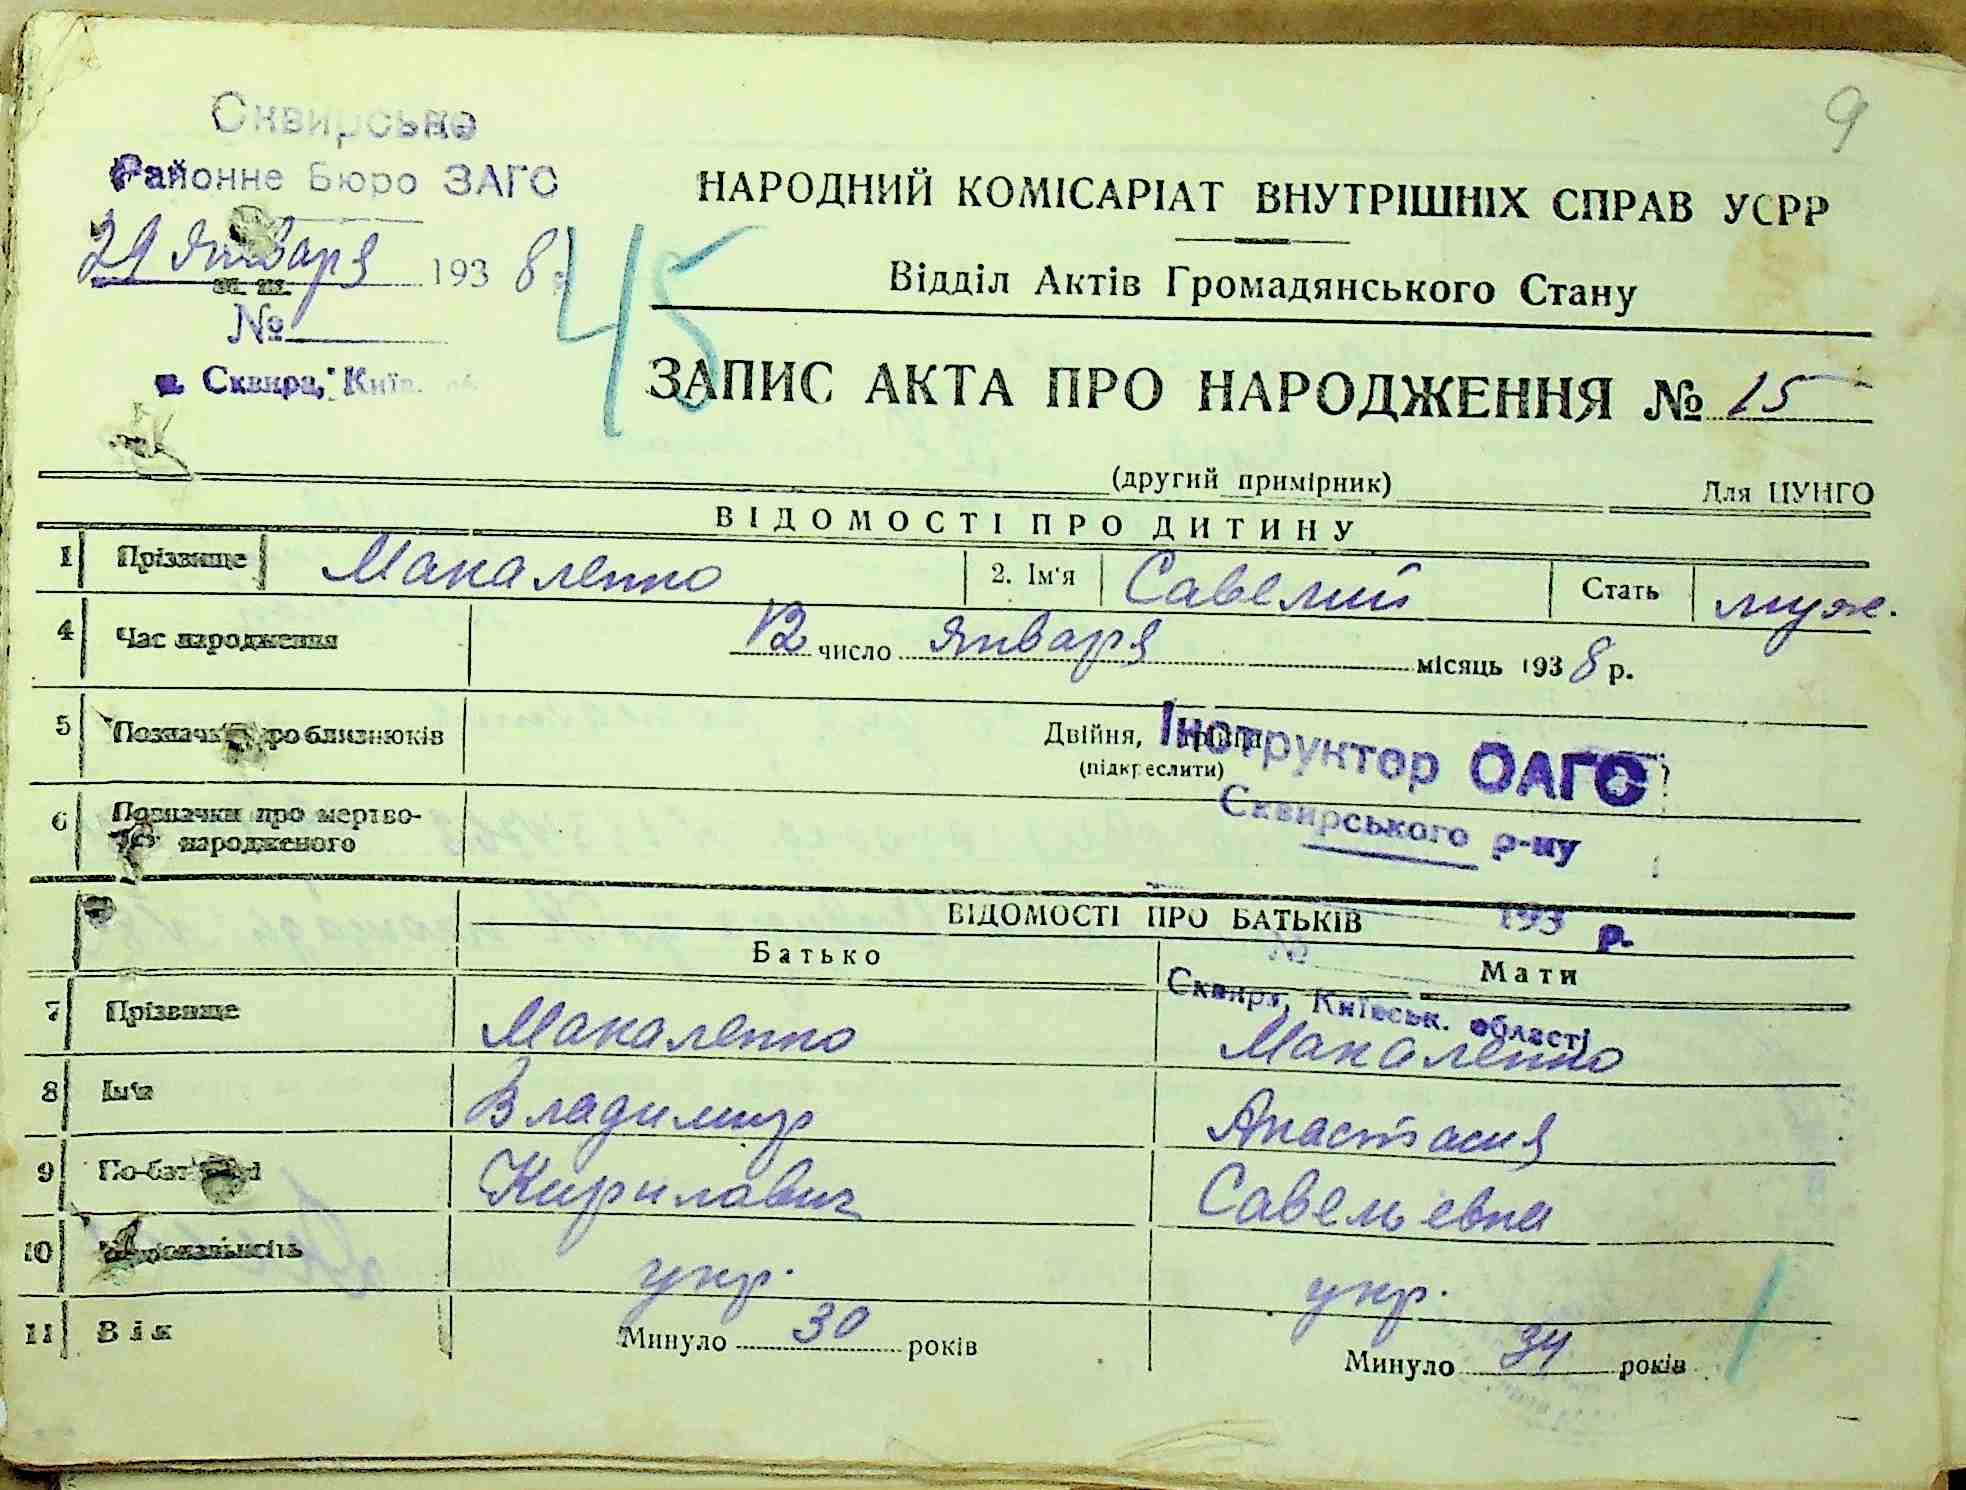 9
Сквирське
Районне Бюро ЗАГС
29 января 1938 р.
№
м. Сквира, Київ. об
45
НАРОДНИЙ КОМІСАРІАТ ВНУТРІШНІХ СПРАВ УСРР
Відділ Актів Громадянського Стану
ЗАПИС АКТА ПРО НАРОДЖЕННЯ № 15
(другий примірник) Для ЦУНГО
ВІДОМОСТІ ПРО ДИТИНУ
1 Прізвище Макаленко 2. Ім'я Савелий Стать муж.
4 Час народження 12 число января місяць 1938 р.
5 Позначки про близнюків Двійня, трійня
(підкреслити)
Інструктор ОАГС
Сквирського р-ну
6 Позначки про мертво-
народженого
193 р.
№
Сквира, Київськ. області
ВІДОМОСТІ ПРО БАТЬКІВ
Батько Мати
7 Прізвище Макаленко Макаленко
8 Ім'я Владимир Анастасия
9 По-батькові Кирилович Савельевна
10 Національність укр. укр.
11 Вік Минуло 30 років Минуло 34 років